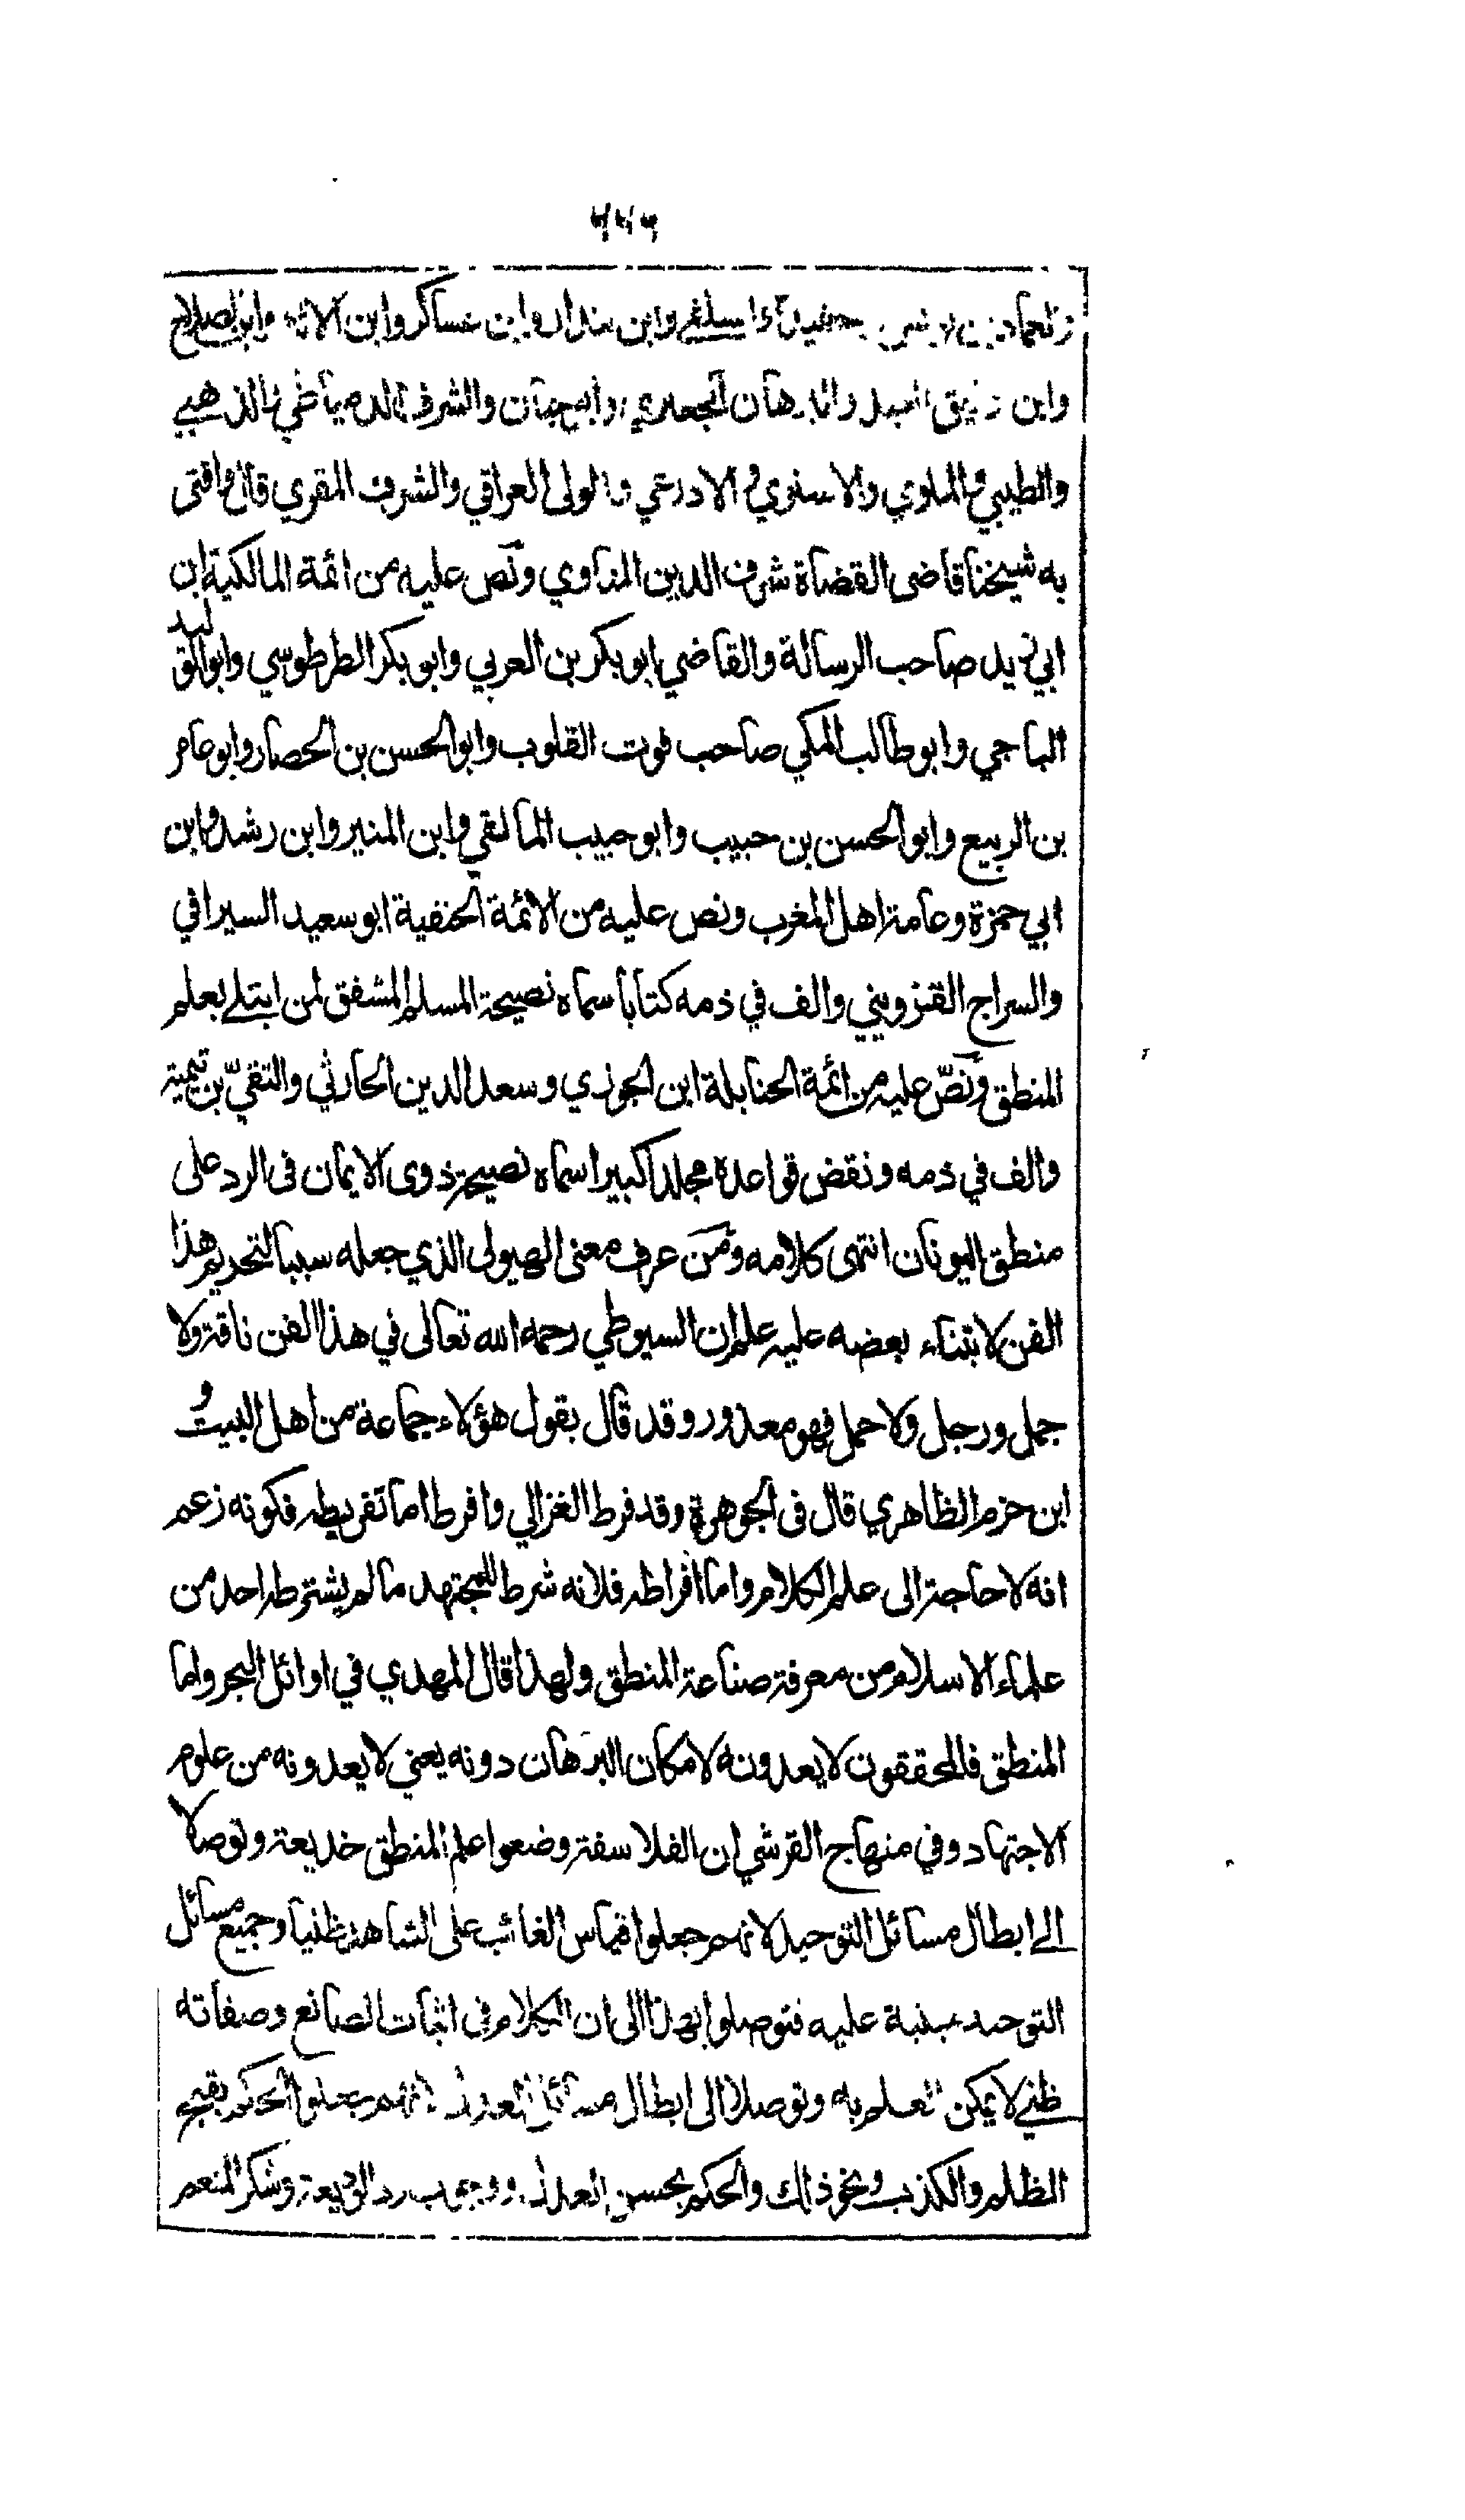 والسلفي وابن بندار وابن عساكر وابن الاثير وابن الصلاح
وابن دقيق العيد والبرهان الجعبري وابو حيان والشرف الدمياطي والذهبي
والطيبي والملوي والاسنوي والاذرعي والولي العراقي والشرف المقري قال وافتى
به شيخنا قاضى القضاة شرف الدين المناوي ونص عليه من ائمة المالكية ابن
ابي زيد صاحب الرسالة والقاضي ابو بكر بن العربي وابو بكر الطرطوسي وابو الوليد
الباجي وابو طالب المكي صاحب قوت القلوب وابو الحسن بن الحصار وابو عامر
بن الربيع وابو الحسن بن حبيب وابو حبيب المالقي وابن المنير وابن رشد وابن
ابي حمزة وعامة اهل المغرب ونص عليه من الائمة الحنفية ابو سعيد السيرافي
والسراج القزويني والف في ذمه كتابا سماه نصيحة المسلم المشفق لمن ابتلي بعلم
المنطق ونصّ عليه من ائمة الحنابلة ابن الجوزي وسعد الدين الحارثي والتقيّ بن تيمية
والف في ذمه ونقض قواعده مجلدا كبيرا سماه نصيحة ذوى الايمان فى الرد على
منطق اليونان انتهى كلامه ومن عرف معنى الهيولى الذي جعله سببا لتحريم هذا
الفن لابتناء بعضه عليه علم ان السيوطي رحمه الله تعالى في هذا الفن ناقة ولا
جمل ورجل ولا حمل فهو معذور وقد قال بقول هؤلاء جماعة من اهل البيت و
ابن حزم الظاهري قال فى الجوهرة وقد فرط الغزالي وافرط اما تفريطه فكونه زعم
انه لا حاجة الى علم الكلام واما افراطه فلانه شرط للمجتهد ما لم يشترطه احد من
علماء الاسلام من معرفة صناعة المنطق ولهذا قال المهدي في اوائل البحر واما
المنطق فالمحققون لا يعدونه لامكان البرهان دونه يعني لا يعدونه من علوم
الاجتهاد وفي منهاج القرشي ان الفلاسفة وضعوا علم المنطق خديعة وتوصلا
الى ابطال مسائل التوحيد لانهم جعلوا قياس الغائب على الشاهد ظنيا وجميع مسائل
التوحيد مبنية عليه فتوصلوا بهذا الى ان الكلام فى اثبات الصانع وصفاته
ظني لا يمكن العلم به وتوصلا الى ابطال مسائل العدل لانهم جعلوا الحكم بقبح
الظلم والكذب ونحو ذلك والحكم بحسن العدل ووجوب رد الوديعة وشكر المنعم